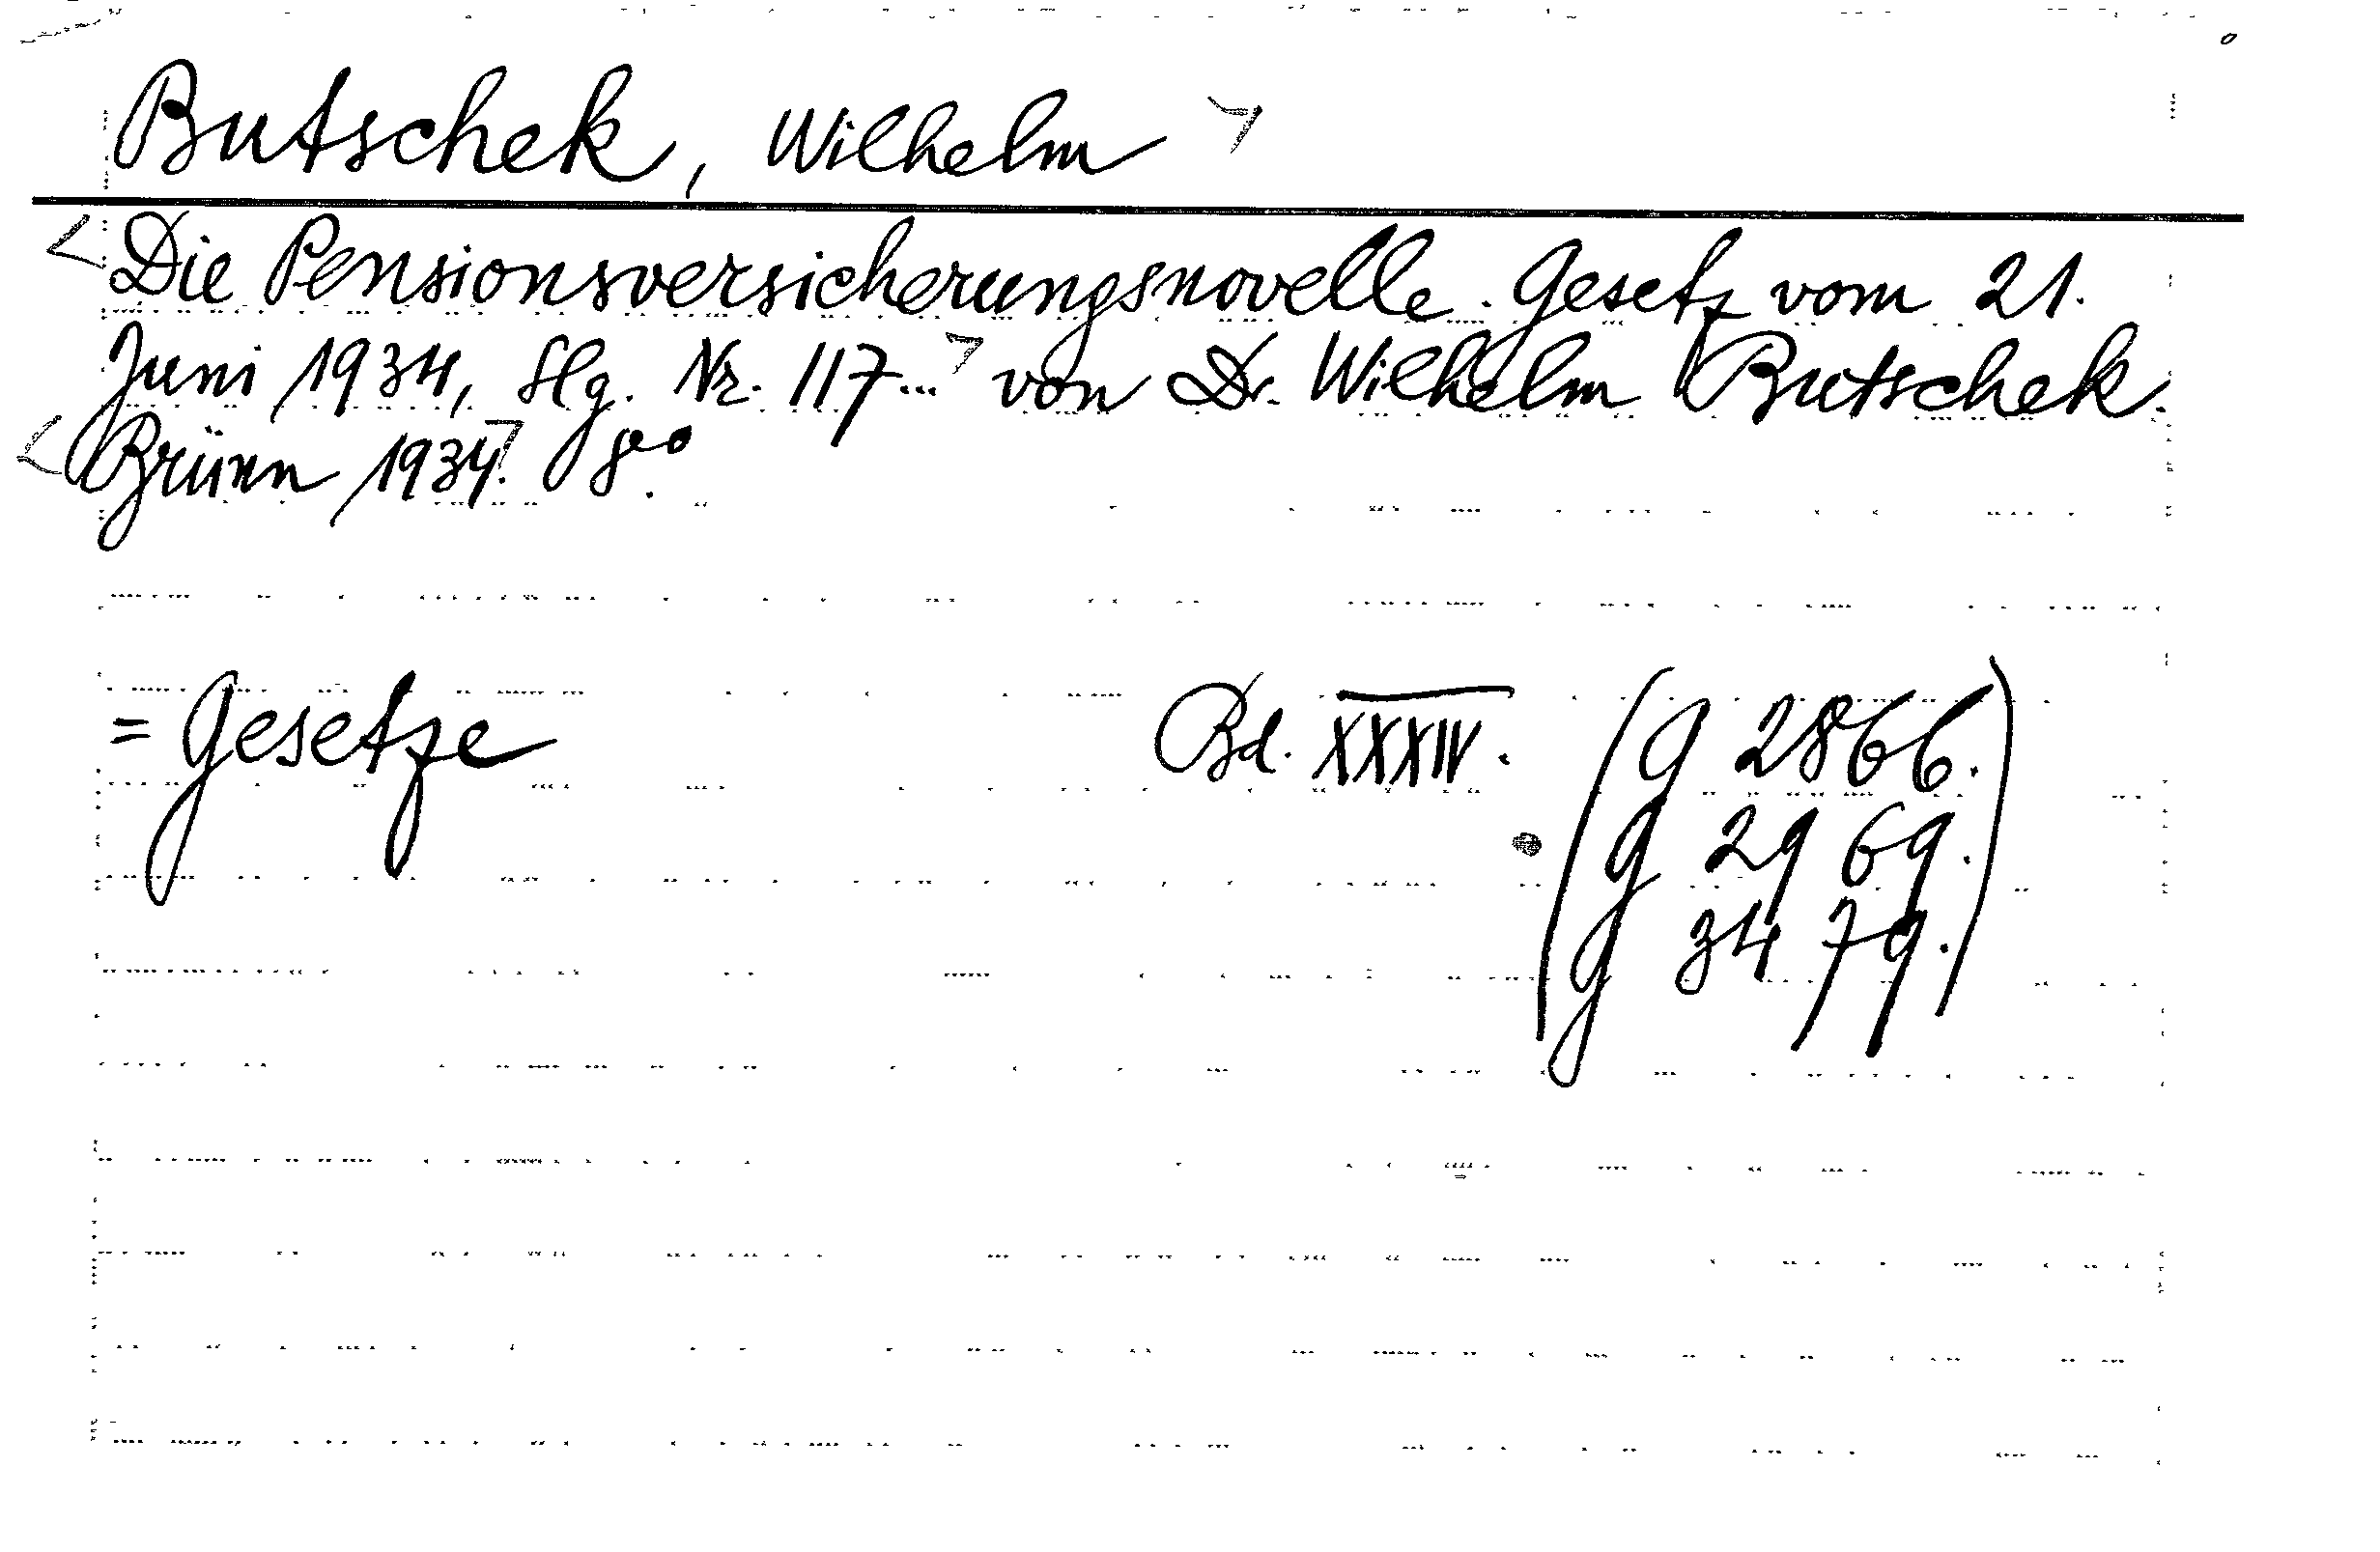 Butschek, Wilhelm
Die Pensionsversicherungsnovelle. Gesetz vom 21.
Juni 1934, Slg. Nr. 117... von Dr. Wilhelm Butschek.
Brünn 1934. 8°.
= Gesetze Bd. XXXIV. (G 2866.
G 2969.
G 3479.)